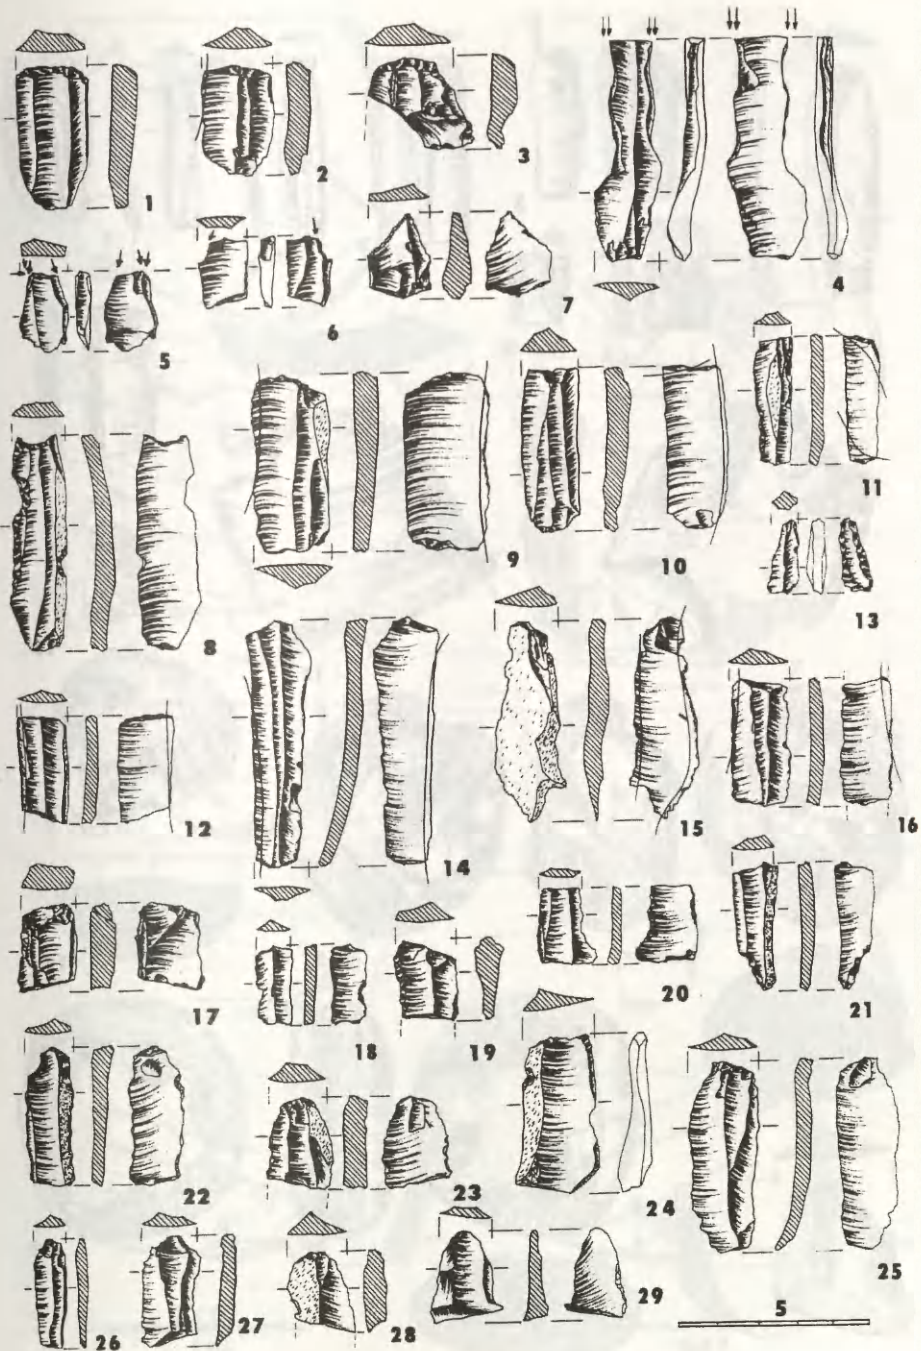 1
2
3
4
5
6
7
8
9
10
11
12
13
14
15
16
17
18
19
20
21
22
23
24
25
26
27
28
29
5